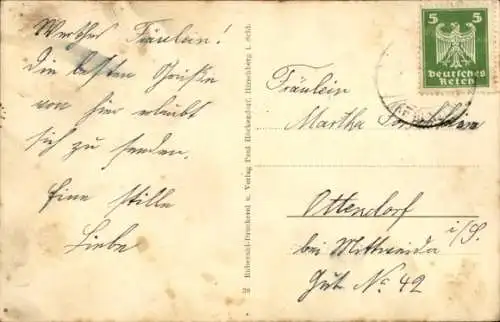 Werthes Fräulein!
Die besten Grüße
von hier erlaubt
sich zu senden.
Eine stille
Liebe
Rübezahl-Druckerei u. Verlag Paul Höckendorf, Hirschberg i. Schl.
38
5 5
Deutsches
Reich
Fräulein
Martha
Ottendorf
bei Mittweida i/S.
Gut No 42